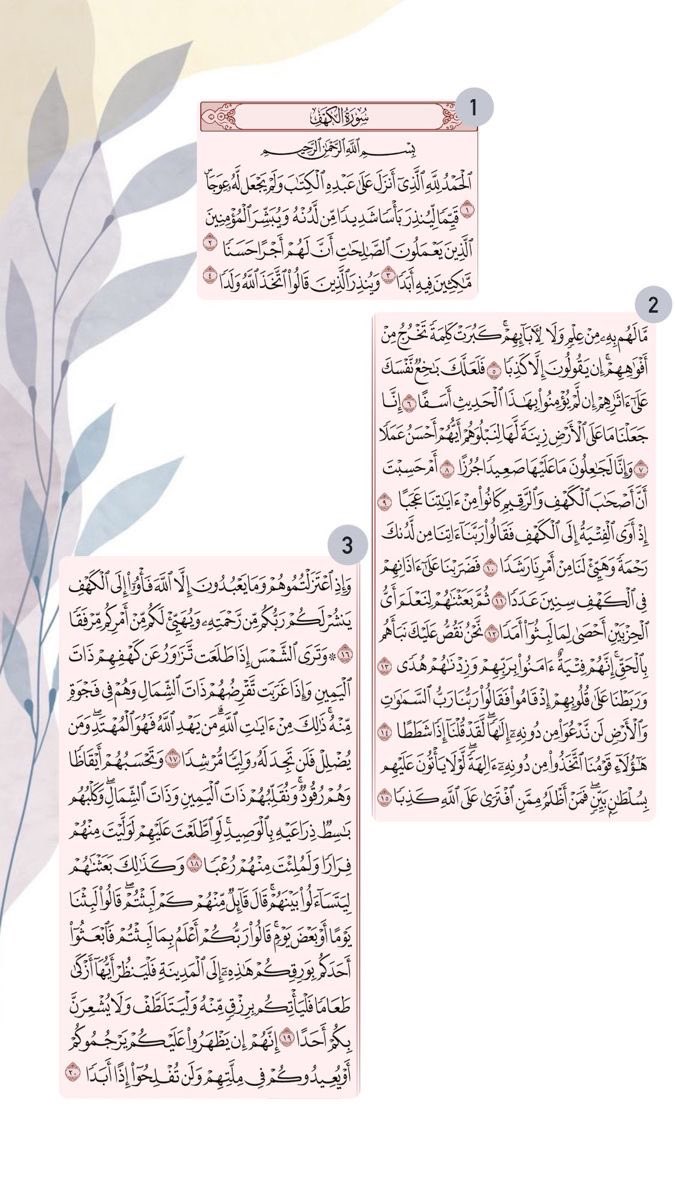 1
سُورَةُ الكَهْفِ
بِسْمِ اللَّهِ الرَّحْمَٰنِ الرَّحِيمِ
ٱلْحَمْدُ لِلَّهِ ٱلَّذِىٓ أَنزَلَ عَلَىٰ عَبْدِهِ ٱلْكِتَٰبَ وَلَمْ يَجْعَل لَّهُۥ عِوَجَا ۜ
١ قَيِّمًا لِّيُنذِرَ بَأْسًا شَدِيدًا مِّن لَّدُنْهُ وَيُبَشِّرَ ٱلْمُؤْمِنِينَ
ٱلَّذِينَ يَعْمَلُونَ ٱلصَّٰلِحَٰتِ أَنَّ لَهُمْ أَجْرًا حَسَنًا ٢
مَّٰكِثِينَ فِيهِ أَبَدًا ٣ وَيُنذِرَ ٱلَّذِينَ قَالُوا۟ ٱتَّخَذَ ٱللَّهُ وَلَدًا ٤
2
مَّا لَهُم بِهِۦ مِنْ عِلْمٍ وَلَا لِءَابَآئِهِمْ ۚ كَبُرَتْ كَلِمَةً تَخْرُجُ مِنْ
أَفْوَٰهِهِمْ ۚ إِن يَقُولُونَ إِلَّا كَذِبًا ٥ فَلَعَلَّكَ بَٰخِعٌ نَّفْسَكَ
عَلَىٰٓ ءَاثَٰرِهِمْ إِن لَّمْ يُؤْمِنُوا۟ بِهَٰذَا ٱلْحَدِيثِ أَسَفًا ٦ إِنَّا
جَعَلْنَا مَا عَلَى ٱلْأَرْضِ زِينَةً لَّهَا لِنَبْلُوَهُمْ أَيُّهُمْ أَحْسَنُ عَمَلًا
٧ وَإِنَّا لَجَٰعِلُونَ مَا عَلَيْهَا صَعِيدًا جُرُزًا ٨ أَمْ حَسِبْتَ
أَنَّ أَصْحَٰبَ ٱلْكَهْفِ وَٱلرَّقِيمِ كَانُوا۟ مِنْ ءَايَٰتِنَا عَجَبًا ٩
إِذْ أَوَى ٱلْفِتْيَةُ إِلَى ٱلْكَهْفِ فَقَالُوا۟ رَبَّنَآ ءَاتِنَا مِن لَّدُنكَ
رَحْمَةً وَهَيِّئْ لَنَا مِنْ أَمْرِنَا رَشَدًا ١٠ فَضَرَبْنَا عَلَىٰٓ ءَاذَانِهِمْ
فِى ٱلْكَهْفِ سِنِينَ عَدَدًا ١١ ثُمَّ بَعَثْنَٰهُمْ لِنَعْلَمَ أَىُّ
ٱلْحِزْبَيْنِ أَحْصَىٰ لِمَا لَبِثُوٓا۟ أَمَدًا ١٢ نَّحْنُ نَقُصُّ عَلَيْكَ نَبَأَهُم
بِٱلْحَقِّ ۚ إِنَّهُمْ فِتْيَةٌ ءَامَنُوا۟ بِرَبِّهِمْ وَزِدْنَٰهُمْ هُدًى ١٣
وَرَبَطْنَا عَلَىٰ قُلُوبِهِمْ إِذْ قَامُوا۟ فَقَالُوا۟ رَبُّنَا رَبُّ ٱلسَّمَٰوَٰتِ
وَٱلْأَرْضِ لَن نَّدْعُوَا۟ مِن دُونِهِۦٓ إِلَٰهًا ۖ لَّقَدْ قُلْنَآ إِذًا شَطَطًا ١٤
هَٰٓؤُلَآءِ قَوْمُنَا ٱتَّخَذُوا۟ مِن دُونِهِۦٓ ءَالِهَةً ۖ لَّوْلَا يَأْتُونَ عَلَيْهِم
بِسُلْطَٰنٍۭ بَيِّنٍ ۖ فَمَنْ أَظْلَمُ مِمَّنِ ٱفْتَرَىٰ عَلَى ٱللَّهِ كَذِبًا ١٥
3
وَإِذِ ٱعْتَزَلْتُمُوهُمْ وَمَا يَعْبُدُونَ إِلَّا ٱللَّهَ فَأْوُۥٓا۟ إِلَى ٱلْكَهْفِ
يَنشُرْ لَكُمْ رَبُّكُم مِّن رَّحْمَتِهِۦ وَيُهَيِّئْ لَكُم مِّنْ أَمْرِكُم مِّرْفَقًا
١٦ ۞ وَتَرَى ٱلشَّمْسَ إِذَا طَلَعَت تَّزَٰوَرُ عَن كَهْفِهِمْ ذَاتَ
ٱلْيَمِينِ وَإِذَا غَرَبَت تَّقْرِضُهُمْ ذَاتَ ٱلشِّمَالِ وَهُمْ فِى فَجْوَةٍ
مِّنْهُ ۚ ذَٰلِكَ مِنْ ءَايَٰتِ ٱللَّهِ ۗ مَن يَهْدِ ٱللَّهُ فَهُوَ ٱلْمُهْتَدِ ۖ وَمَن
يُضْلِلْ فَلَن تَجِدَ لَهُۥ وَلِيًّا مُّرْشِدًا ١٧ وَتَحْسَبُهُمْ أَيْقَاظًا
وَهُمْ رُقُودٌ ۚ وَنُقَلِّبُهُمْ ذَاتَ ٱلْيَمِينِ وَذَاتَ ٱلشِّمَالِ ۖ وَكَلْبُهُم
بَٰسِطٌ ذِرَاعَيْهِ بِٱلْوَصِيدِ ۚ لَوِ ٱطَّلَعْتَ عَلَيْهِمْ لَوَلَّيْتَ مِنْهُمْ
فِرَارًا وَلَمُلِئْتَ مِنْهُمْ رُعْبًا ١٨ وَكَذَٰلِكَ بَعَثْنَٰهُمْ
لِيَتَسَآءَلُوا۟ بَيْنَهُمْ ۚ قَالَ قَآئِلٌ مِّنْهُمْ كَمْ لَبِثْتُمْ ۖ قَالُوا۟ لَبِثْنَا
يَوْمًا أَوْ بَعْضَ يَوْمٍ ۚ قَالُوا۟ رَبُّكُمْ أَعْلَمُ بِمَا لَبِثْتُمْ فَٱبْعَثُوٓا۟
أَحَدَكُم بِوَرِقِكُمْ هَٰذِهِۦٓ إِلَى ٱلْمَدِينَةِ فَلْيَنظُرْ أَيُّهَآ أَزْكَىٰ
طَعَامًا فَلْيَأْتِكُم بِرِزْقٍ مِّنْهُ وَلْيَتَلَطَّفْ وَلَا يُشْعِرَنَّ
بِكُمْ أَحَدًا ١٩ إِنَّهُمْ إِن يَظْهَرُوا۟ عَلَيْكُمْ يَرْجُمُوكُمْ
أَوْ يُعِيدُوكُمْ فِى مِلَّتِهِمْ وَلَن تُفْلِحُوٓا۟ إِذًا أَبَدًا ٢٠